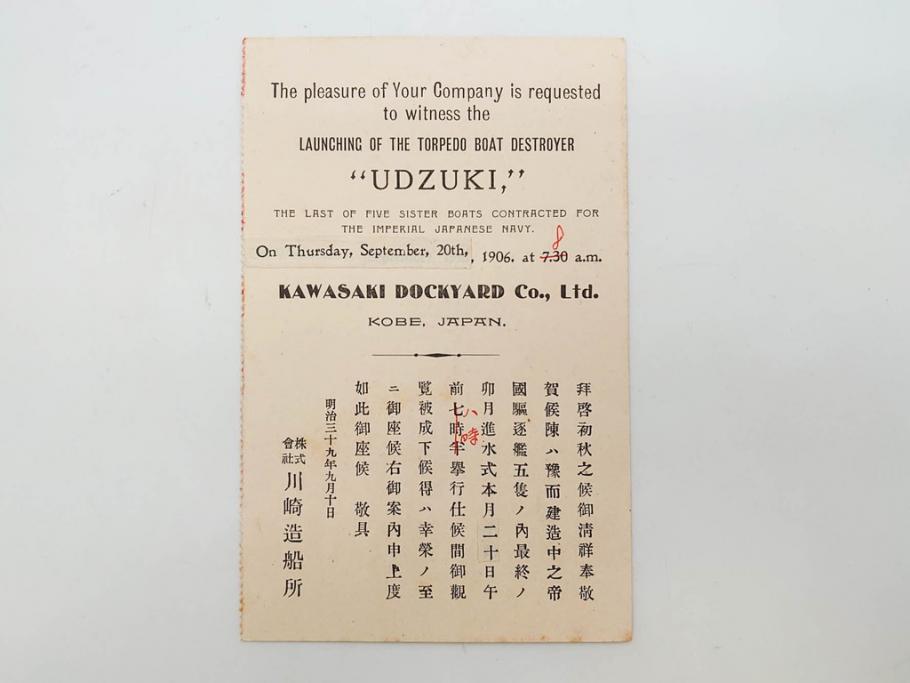 The pleasure of Your Company is requested
to witness the
LAUNCHING OF THE TORPEDO BOAT DESTROYER
“UDZUKI,”
THE LAST OF FIVE SISTER BOATS CONTRACTED FOR
THE IMPERIAL JAPANESE NAVY.
On Thursday, September, 20th,, 1906. at 7.30 8 a.m.
KAWASAKI DOCKYARD Co., Ltd.
KOBE, JAPAN.
拜啓初秋之候御淸祥奉敬
賀候陳ハ豫而建造中之帝
國驅逐艦五隻ノ內最終ノ
卯月進水式本月二十日午
前七時半八時擧行仕候間御觀
覽被成下候得ハ幸榮ノ至
ニ御座候右御案內申上度
如此御座候 敬具
明治三十九年九月十日
株式會社川崎造船所